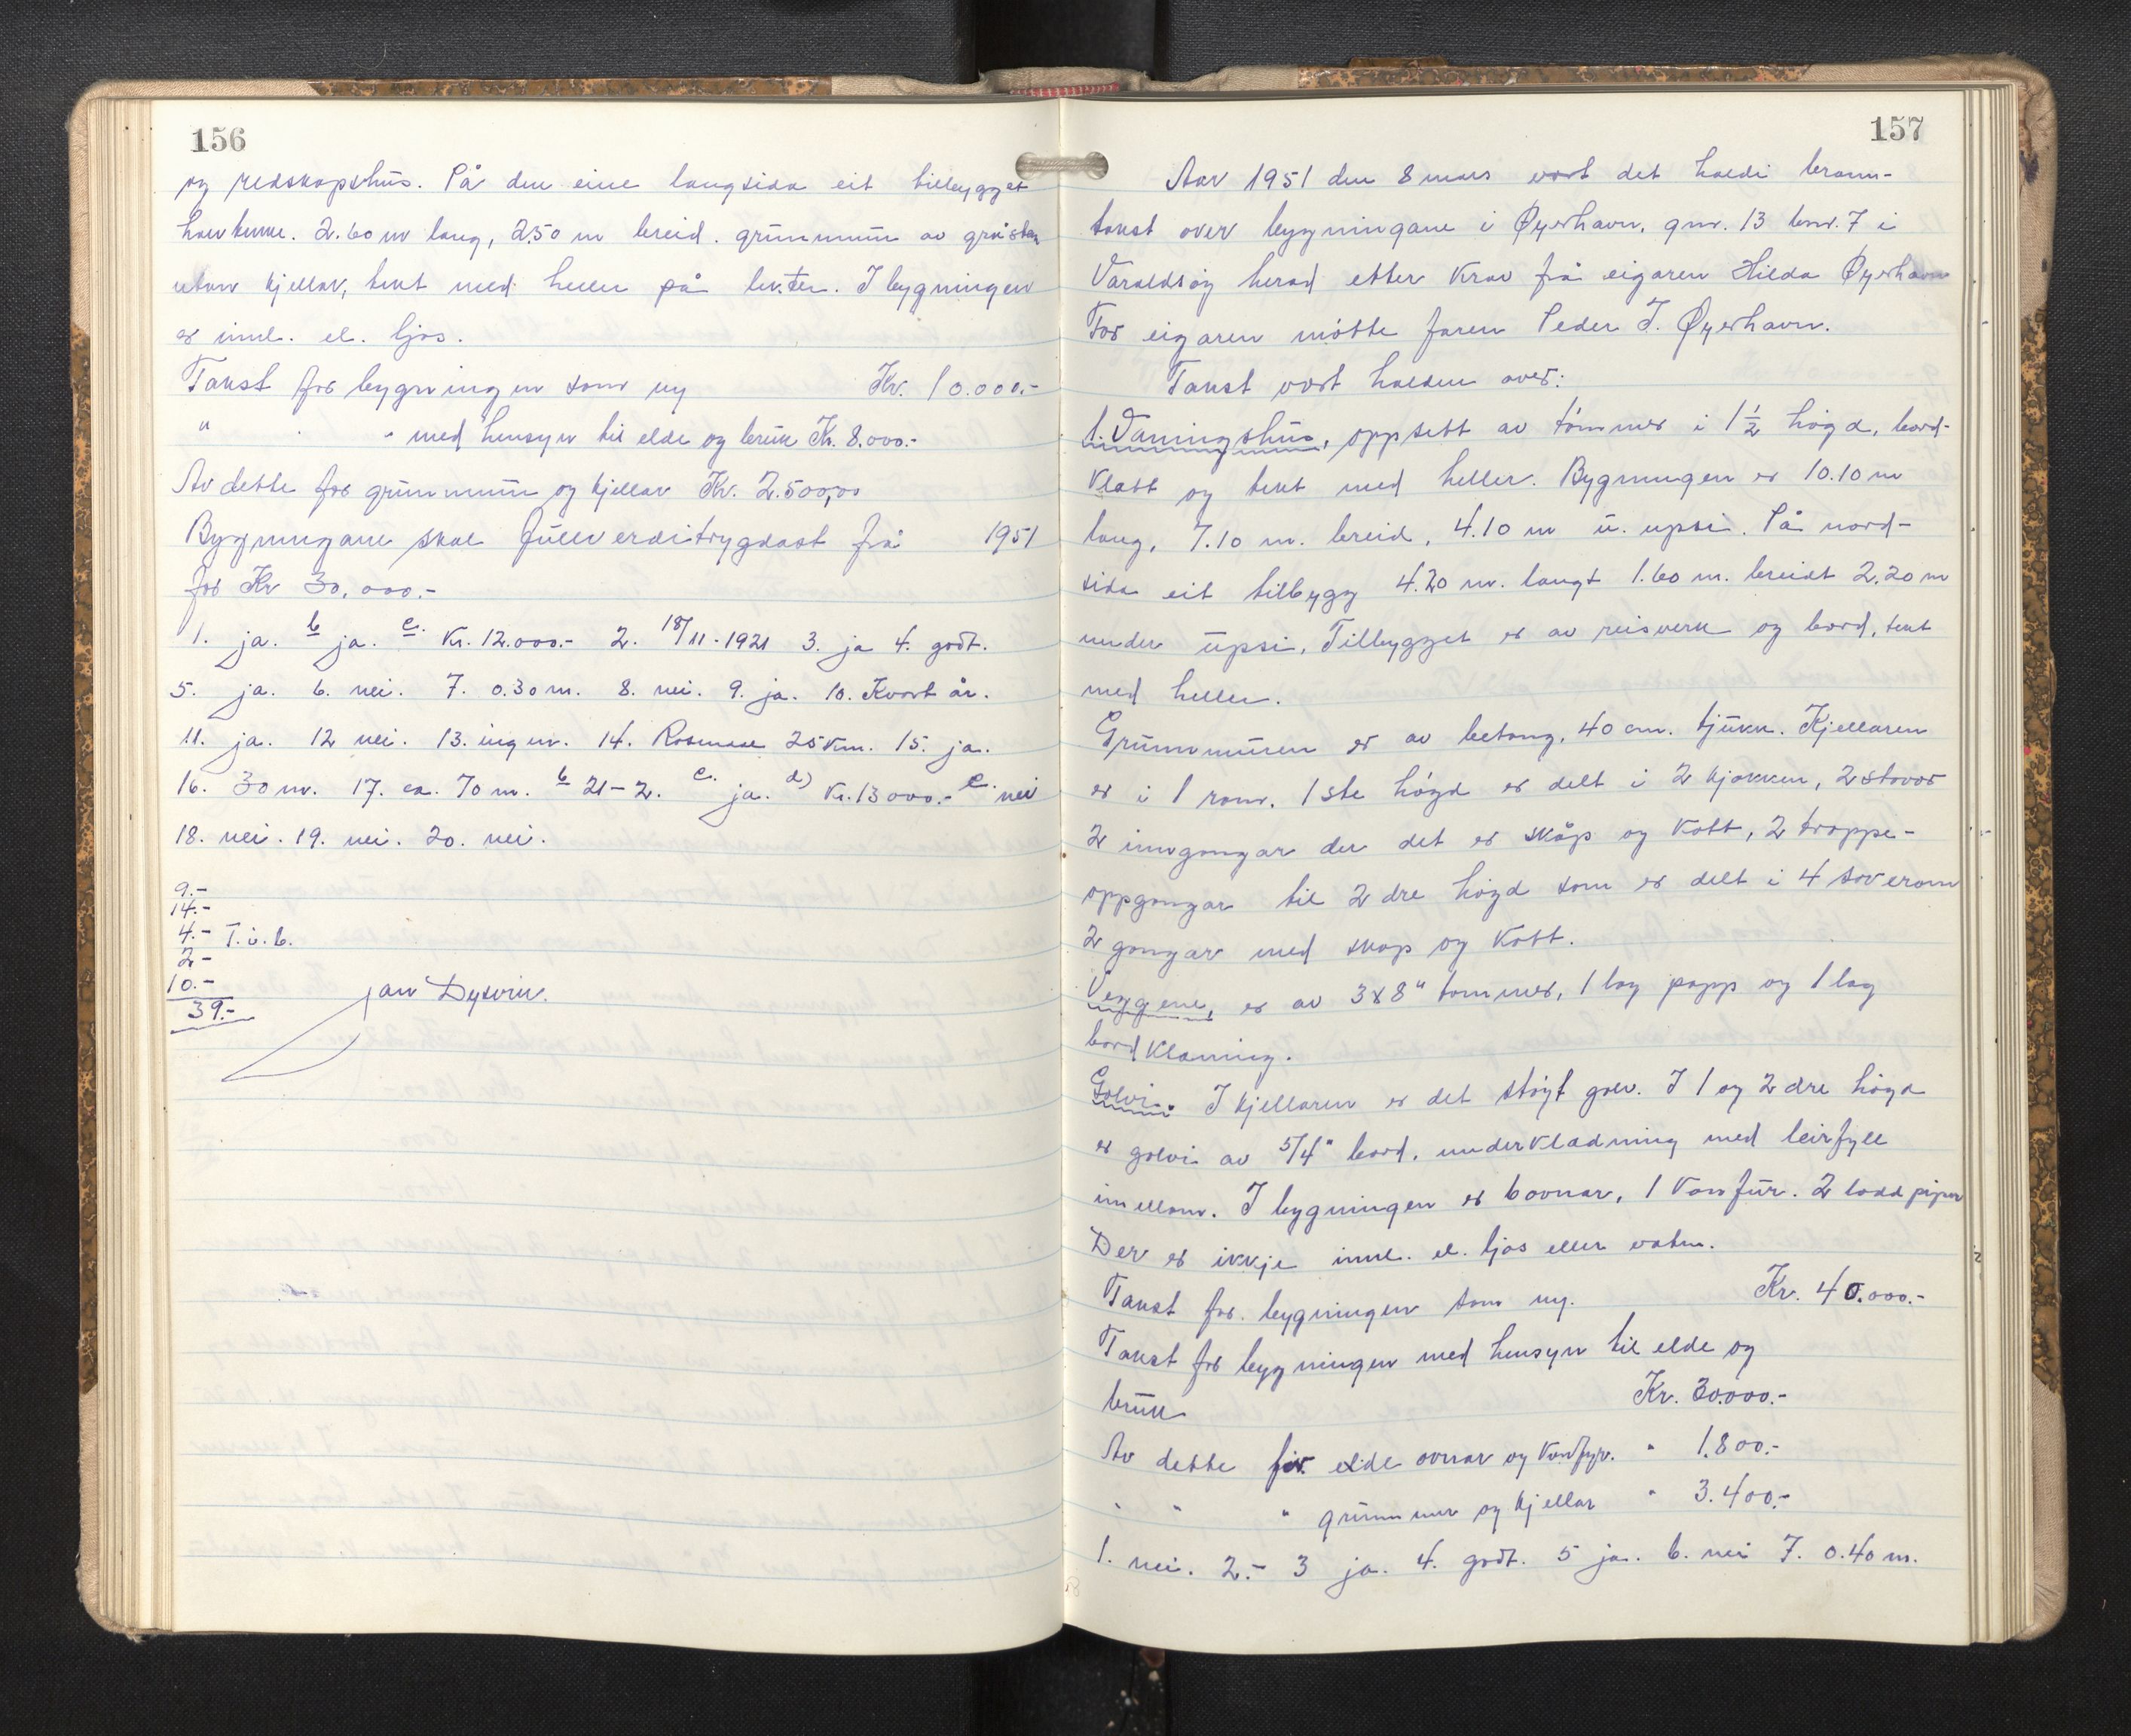 156
og redskapshus. På den eine langsida eit tilbygget
hønehus. 2.60 m lang, 2.50 m breid. grunnmur av gråstein
utan kjellar, tekt med heller på lekter. I bygningen
er innl. el. ljos.
Takst for bygningen som ny Kr. 10.000.-
" " med hensyn til elde og bruk Kr. 8.000.-
Av dette for grunnmur og kjellar Kr. 2.500,00
Bygningane skal fullverditrygdast frå 1951
for Kr 30.000.-
1. ja. b ja. c. Kr. 12.000.- 2. 18/11-1921 3. ja 4. godt.
5. ja. 6. nei. 7. 0.30 m. 8. nei. 9. ja. 10. Kvart år.
11. ja. 12 nei. 13. ingen. 14. Rosendal 25 km. 15. ja.
16. 30 m. 17. ca. 70 m. b 21-2. c. ja. d) Kr. 13000.- e. nei
18. nei. 19. nei. 20. nei.
9.-
14.-
4.- T.i.b.
2-
10.-
39.-
Jan Dysvik.
157
Aar 1951 den 8 mars vart det haldi brann-
takst over bygningane i Øyerhavn, gnr. 13 bnr. 7 i
Varaldsøy herad etter krav frå eigaren Hilda Øyerhavn
For eigaren møtte faren Peder J. Øyerhavn.
Takst vart halden over:
1. Vaningshus, oppsett av tømmer i 1½ høgd, bord-
klatt og tekt med heller. Bygningen er 10.10 m
lang, 7.10 m. breid, 4.10 m u. upsi. På nord-
sida eit tilbygg 4.20 m. langt 1.60 m. breidt 2.20 m
under upsi. Tilbygget er av reisverk og bord, tekt
med heller.
Grunnmuren er av betong, 40 cm. tjukk. Kjellaren
er i 1 rom. 1ste høgd er delt i 2 kjøkken, 2 stovor
2 inngongar der det er skåp og kott, 2 troppe-
oppgongar til 2 dre høgd som er delt i 4 soverom
2 gongar med skap og kott.
Veggene, er av 3x8" tommer, 1 lag papp og 1 lag
bordklaning.
Golvi. I kjellaren er det støypt golv. I 1 og 2 dre høgd
er golvi av 5/4" bord, underkladning med leirfyll
imellom. I bygningen er 6 ovnar, 1 komfur. 2 ladd piper
Der er ikkje innl. el. ljos eller vatn.
Takst for bygningen som ny. Kr. 40.000.-
Takst for bygningen med hensyn til elde og
bruk Kr. 30.000.-
Av dette for elde ovnar og komfyr. " 1.800.-
" " " grunnmur og kjellar " 3.400.-
1. nei. 2.- 3 ja. 4. godt. 5 ja. 6. nei 7. 0.40 m.